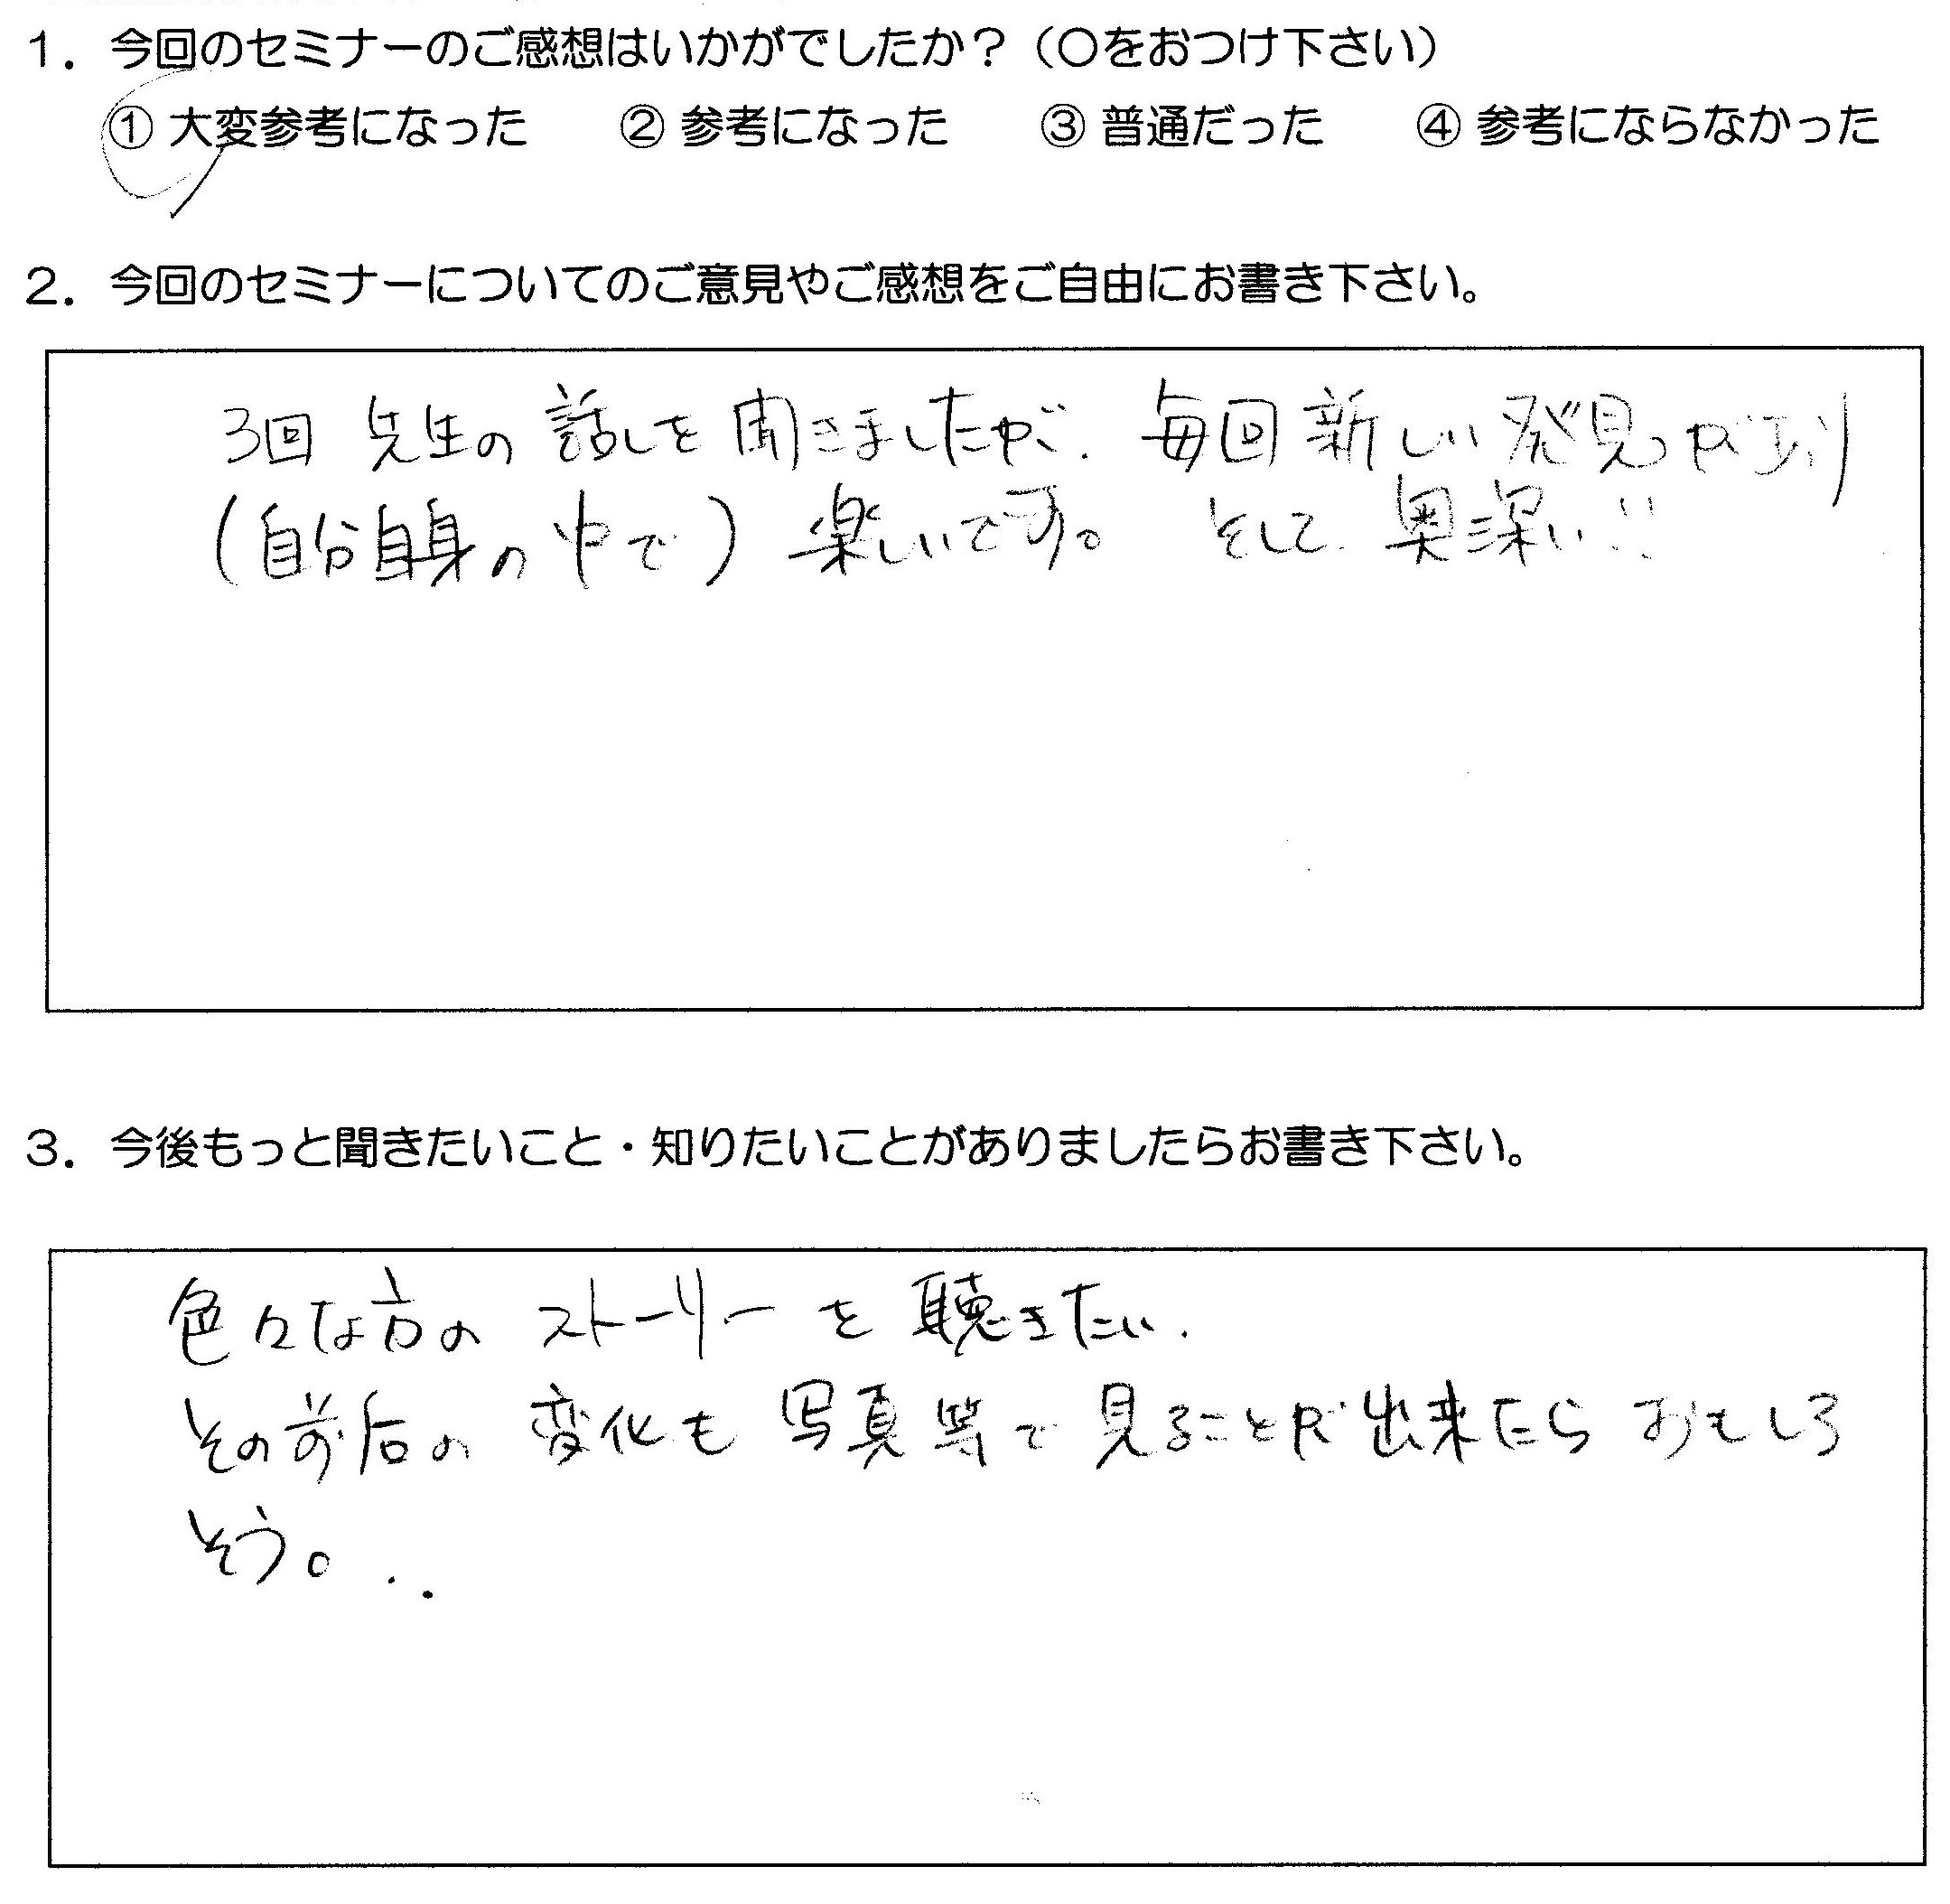 1. 今回のセミナーのご感想はいかがでしたか？（〇をおつけ下さい）
① 大変参考になった ② 参考になった ③ 普通だった ④ 参考にならなかった
2. 今回のセミナーについてのご意見やご感想をご自由にお書き下さい。
3回 先生の 話しを 聞きましたが、毎回 新しい 発見があり
(自分自身の中で) 楽しいです。 そして 奥深い!!
3. 今後もっと聞きたいこと・知りたいことがありましたらお書き下さい。
色々な方の ストーリーを 聴きたい.
その前后の 変化も 写真等で 見ることが出来たら おもしろ
そう。..